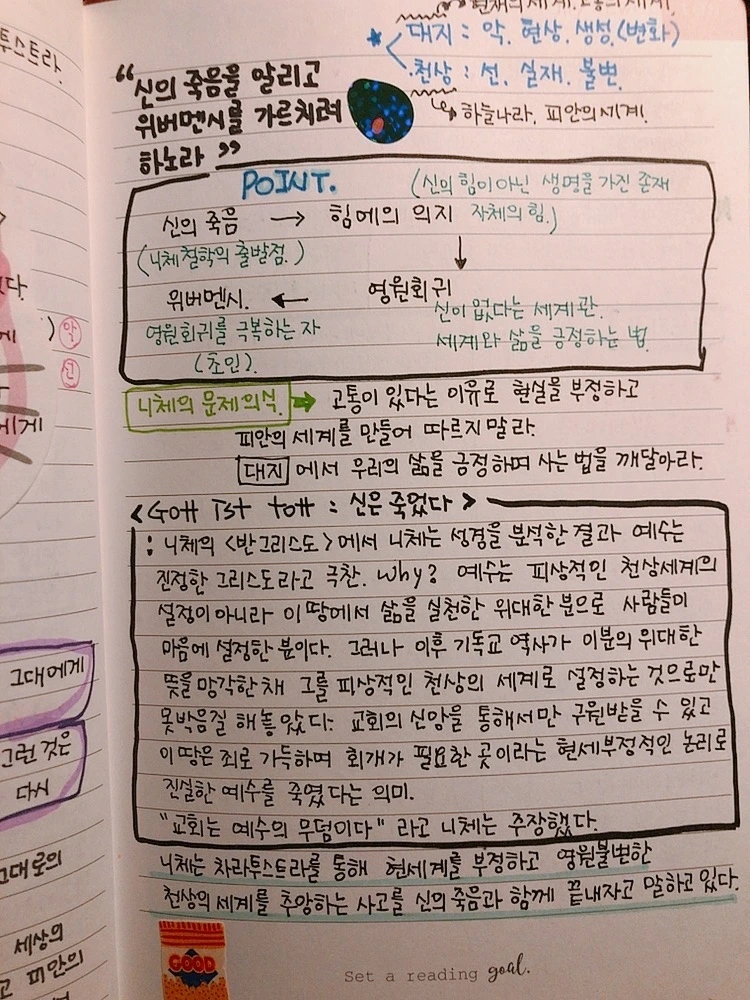 현재의 세계. 고통의 세계.
대지 : 악. 현상. 생성(변화)
천상 : 선. 실재. 불변.
하늘나라. 피안의 세계.
“신의 죽음을 알리고
위버멘시를 가르치려
하노라”
POINT.
(신의 힘이 아닌 생명을 가진 존재
신의 죽음 → 힘에의 의지 자체의 힘.)
(니체철학의 출발점.)
위버멘시. ← 영원회귀
신이 없다는 세계관.
영원회귀를 극복하는 자
세계와 삶을 긍정하는 법.
(초인).
니체의 문제의식. → 고통이 있다는 이유로 현실을 부정하고
피안의 세계를 만들어 따르지말라.
대지에서 우리의 삶을 긍정하며 사는 법을 깨달아라.
<Gott Ist tott : 신은 죽었다>
: 니체의 <반그리스도>에서 니체는 성경을 분석한 결과 예수는
진정한 그리스도라고 극찬. Why? 예수는 피상적인 천상세계의
설정이 아니라 이 땅에서 삶을 실천한 위대한 분으로 사람들이
마음에 설정한 분이다. 그러나 이후 기독교 역사가 이분의 위대한
뜻을 망각한채 그를 피상적인 천상의 세계로 설정하는 것으로만
못박음질 해놓았다. 교회의 신앙을 통해서만 구원받을 수 있고
이 땅은 죄로 가득하며 회개가 필요한 곳이라는 현세부정적인 논리로
진실한 예수를 죽였다는 의미.
“교회는 예수의 무덤이다” 라고 니체는 주장했다.
니체는 차라투스트라를 통해 현세계를 부정하고 영원불변한
천상의 세계를 추앙하는 사고를 신의 죽음과 함께 끝내자고 말하고 있다.
GOOD
Set a reading goal.
투스트라.
그대에게
그런 것은
다시
그대로의
세상의
피안의